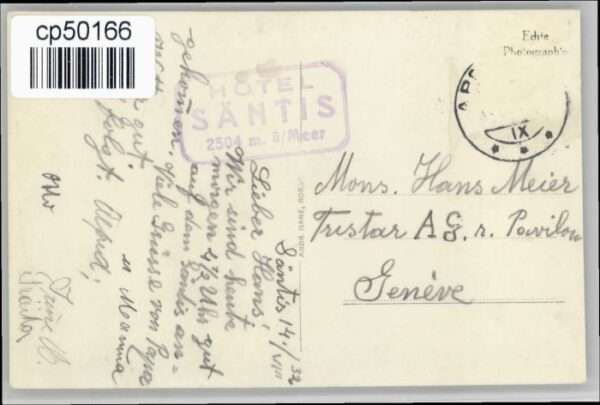 cp50166
Echte
Photographie
HOTEL
SÄNTIS
2504 m. ü/Meer
IX
Säntis 14./VIII 32
Lieber Hans!
Wir sind heute
morgen 4½ Uhr gut
auf dem Säntis an-
gekommen. Viele Grüsse von Papa
u Mamma
gut
folgt. Alfred,
Mons. Hans Meier
Tristar AG. r. Pavillon
Genève